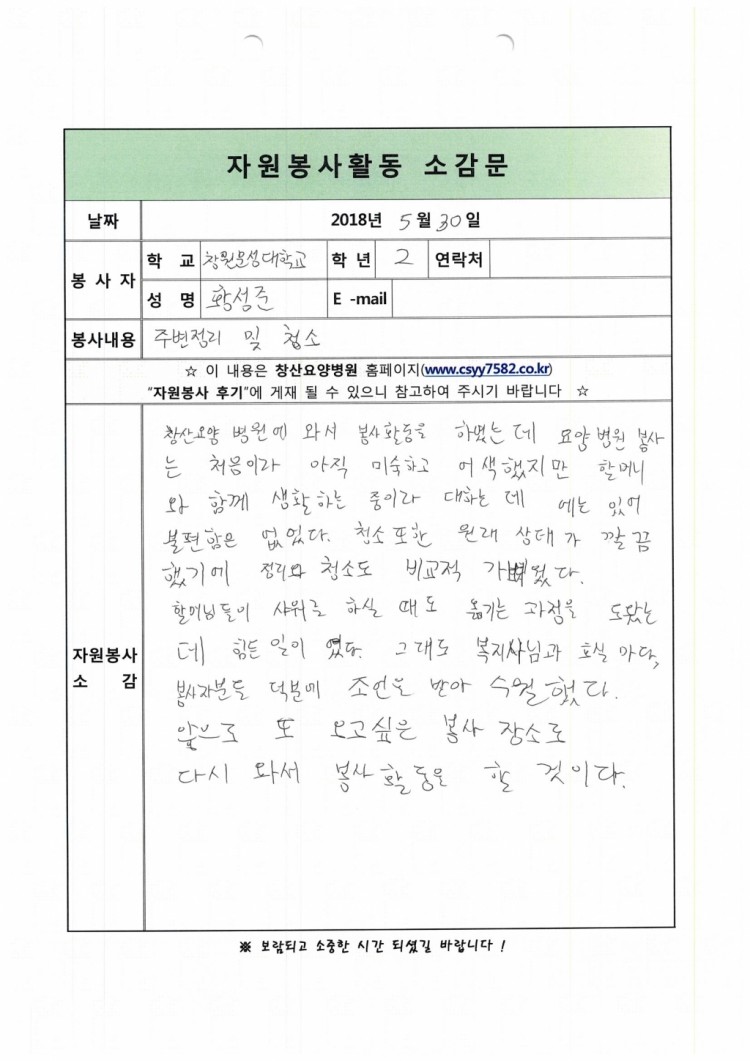 자원봉사활동 소감문
날짜 2018년 5월 30일
봉사자 학교 창원문성대학교 학년 2 연락처
성명 황성준 E-mail
봉사내용 주변정리 및 청소
☆ 이 내용은 창산요양병원 홈페이지(www.csyy7582.co.kr)
"자원봉사 후기"에 게재 될 수 있으니 참고하여 주시기 바랍니다 ☆
자원봉사 소감
창산요양 병원에 와서 봉사활동을 하였는데 요양병원 봉사
는 처음이라 아직 미숙하고 어색했지만 할머니
와 함께 생활하는 중이라 대하는 데 에는 있어
불편함은 없었다. 청소 또한 원래 상태가 깔끔
했기에 정리와 청소도 비교적 가벼웠다.
할머님들이 샤워를 하실 때도 옮기는 과정을 도왔는
데 힘든 일이 였다. 그래도 복지사님과 호실 마다,
봉사자분들 덕분에 조언을 받아 수월했다.
앞으로 또 오고싶은 봉사 장소로
다시 와서 봉사 활동을 할 것이다.
※ 보람되고 소중한 시간 되셨길 바랍니다 !